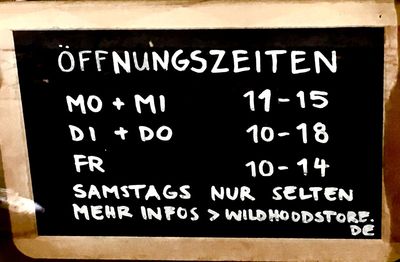 ÖFFNUNGSZEITEN
MO + MI 11-15
DI + DO 10-18
FR 10-14
SAMSTAGS NUR SELTEN
MEHR INFOS > WILDHOODSTORE.
DE